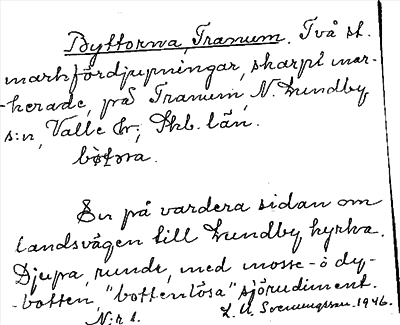 Byttorna, Tranum. Två st.
markfördjupningar, skarpt mar-
kerade, på Tranum, N. Lundby
s:n, Valle hr, Skb. län.
En på vardera sidan om
landsvägen till Lundby kyrka.
Djupa, runda, med mosse- o dy-
botten, "bottenlösa" sjörudiment.
N:r 1. L. A. Svenungsson. 1946.